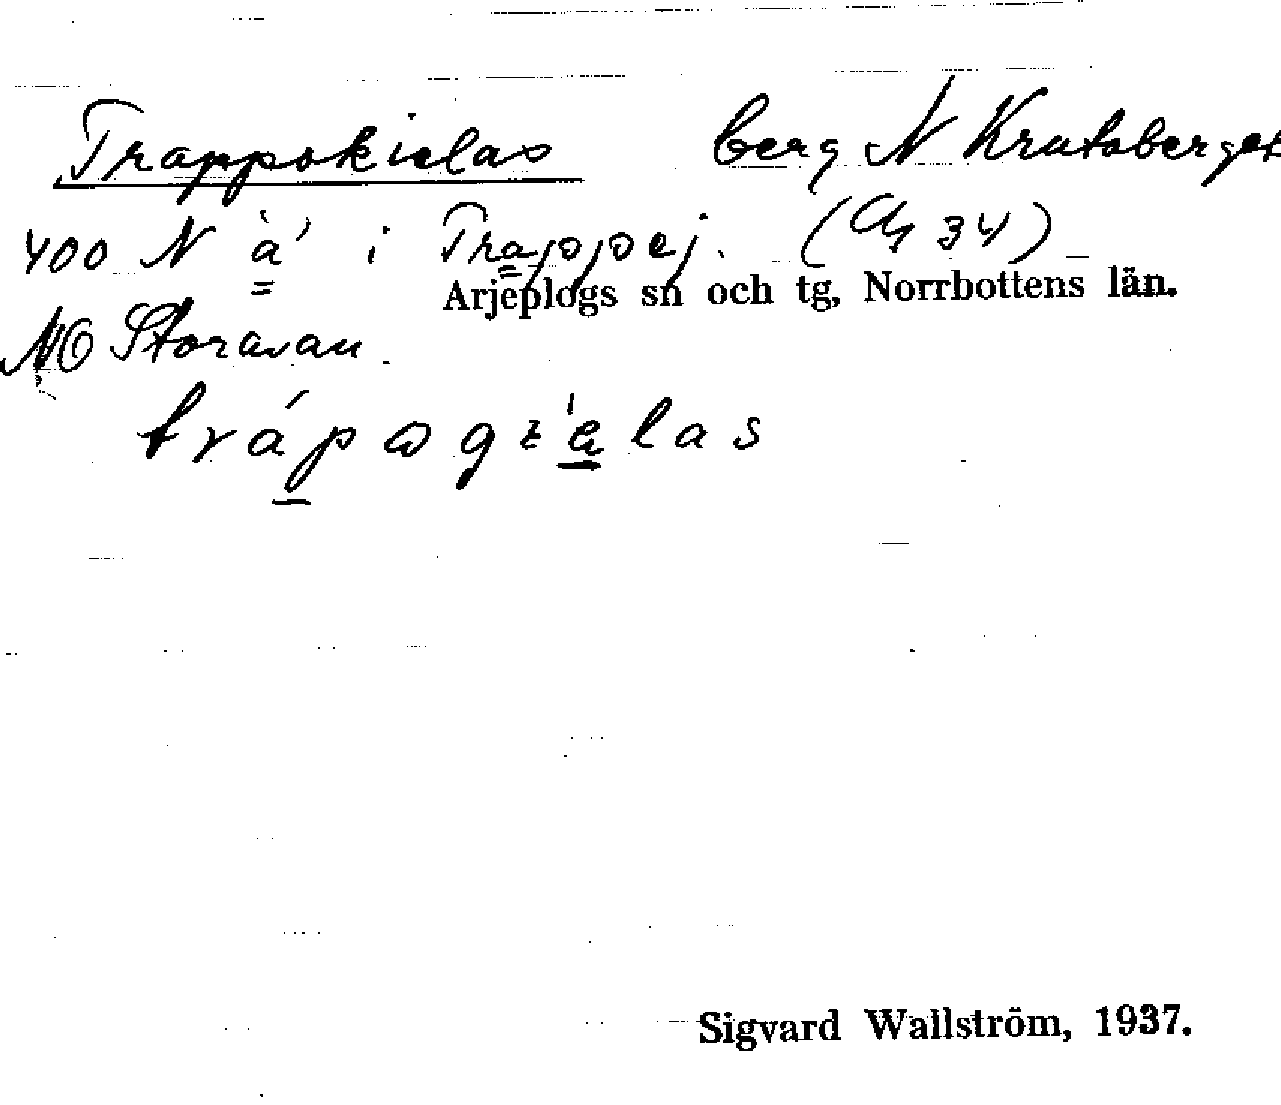 Trappokielas berg N Krutaberget
400 N a' i Trappej. (Ar 34)
Arjeplogs sn och tg, Norrbottens län.
NO Storavan.
Sigvard Wallström, 1937.